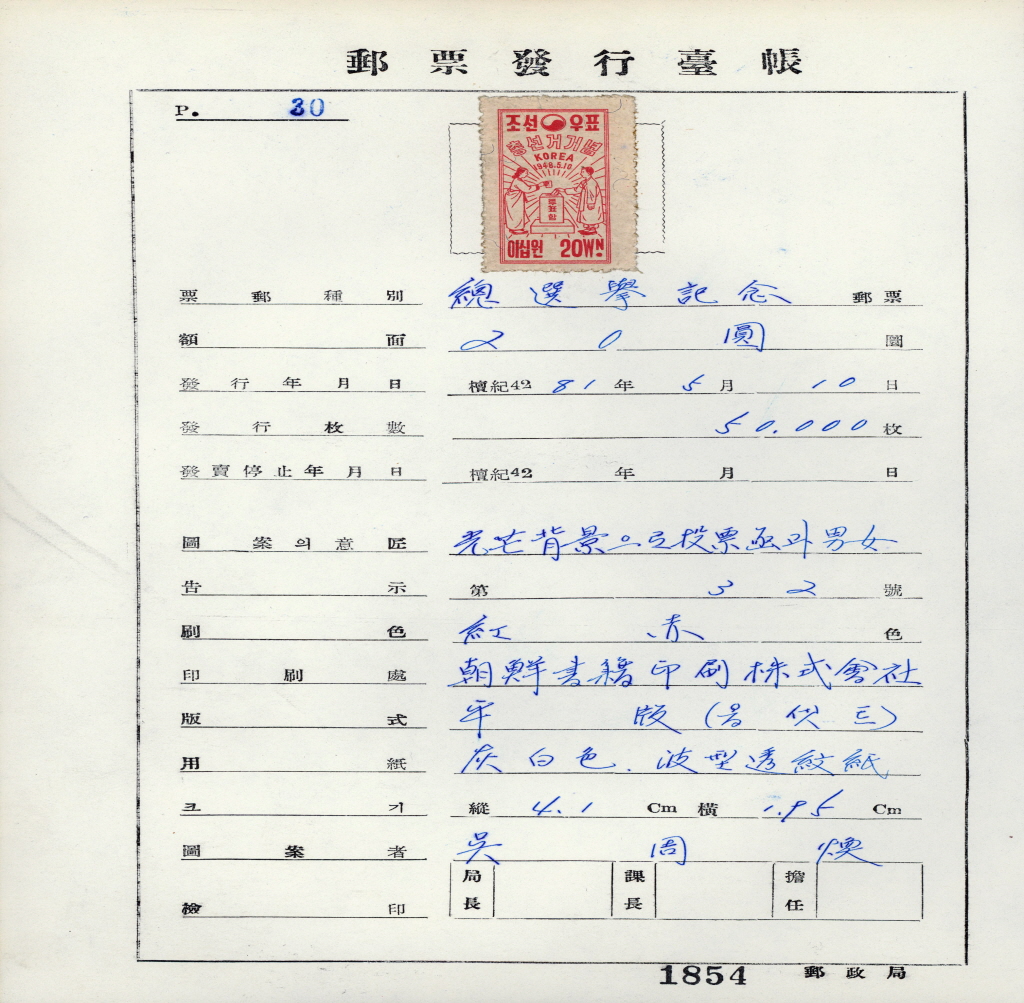 郵票發行臺帳
P. 30
조선 우표
총선거기념
KOREA
1948.5.10
투표함
이십원 20WN
票郵種別 總選擧記念 郵票
額面 20圓 圜
發行年月日 檀紀4281年5月10日
發行枚數 50.000枚
發賣停止年月日 檀紀42 年 月 日
圖案의意匠 光芒背景으로投票函과男女
告示 第32號
刷色 紅赤色
印刷處 朝鮮書籍印刷株式會社
版式 平版(옵셋트)
用紙 灰白色.波型透紋紙
크기 縱4.1Cm橫1.95Cm
圖案者 吳周煥
檢印 局長 課長 擔任
1854 郵政局